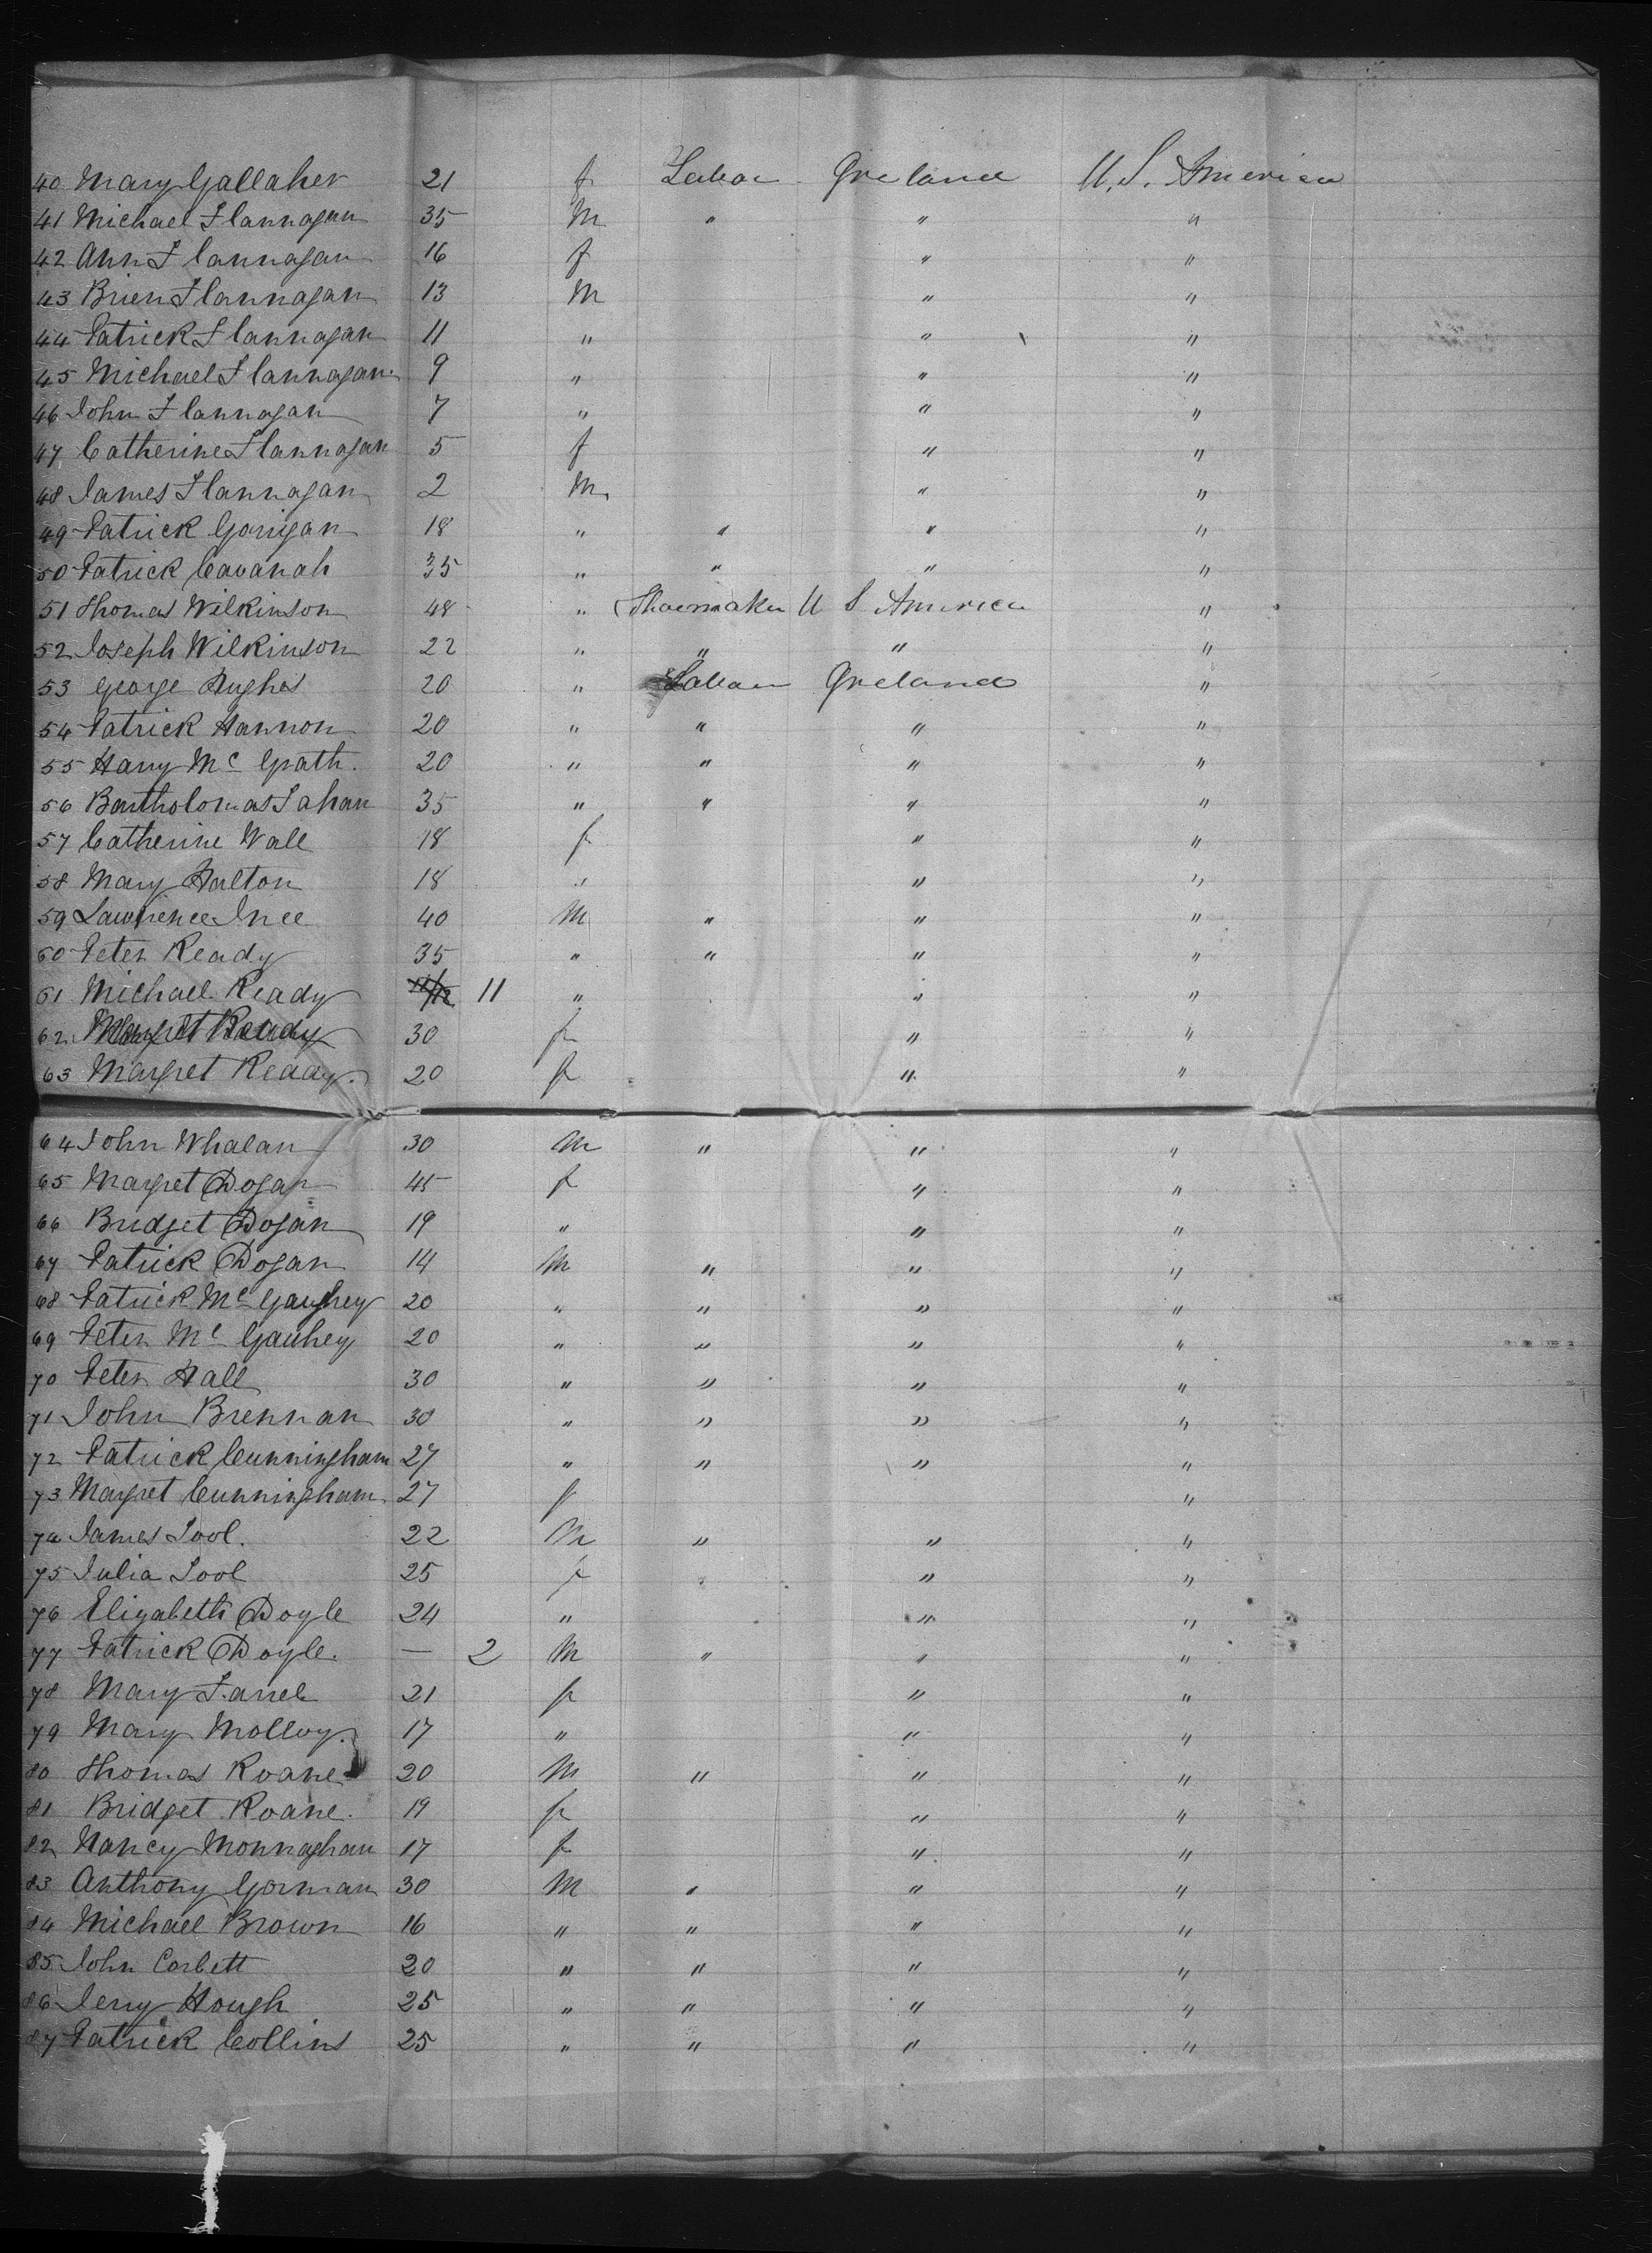 40 Mary Gallaher 21 f Labor Ireland U. S. America
41 Michael Flannagan 35 M " " "
42 Ann Flannagan 16 f " "
43 Brien Flannagan 13 M " "
44 Patrick Flannagan 11 " " "
45 Michael Flannagan 9 " " "
46 John Flannagan 7 " " "
47 Catherine Flannagan 5 f " "
48 James Flannagan 2 M " "
49 Patrick Garrigan 18 " " " "
50 Patrick Cavanah 35 " " " "
51 Thomas Wilkinson 48 " Shoemaker U S America "
52 Joseph Wilkinson 22 " " " "
53 George Hughes 20 " Labor Ireland "
54 Patrick Hannon 20 " " " "
55 Harry Mc Grath. 20 " " " "
56 Bartholomas Fahan 35 " " " "
57 Catherine Wall 18 f " "
58 Mary Halton 18 " " "
59 Lawrience Ince 40 M " " "
60 Peter Ready 35 " " " "
61 Michael Ready 11 " " "
62 Ready 30 f " "
63 Margret Ready. 20 f " "
64 John Whalan 30 M " " "
65 Margret Dogan 45 f " "
66 Bridget Dogan 19 " " "
67 Patrick Dogan 14 M " " "
68 Patrick Mc Gaughey 20 " " " "
69 Peter Mc Gauhey 20 " " " "
70 Peter Hall 30 " " " "
71 John Brennan 30 " " " "
72 Patrick Cunningham 27 " " " "
73 Margret Cunningham 27 f "
74 James Tool. 22 M " " "
75 Julia Tool 25 f " "
76 Elizabeth Doyle 24 " " "
77 Patrick Doyle. — 2 M " " "
78 Mary Farrel 21 f " "
79 Mary Molloy. 17 " " "
80 Thomas Roane 20 M " " "
81 Bridget Roane. 19 f " "
82 Nancy Monnaghan 17 f " "
83 Anthony Gorman 30 M " " "
84 Michael Brown 16 " " " "
85 John Corbett 20 " " " "
86 Jerry Hough 25 " " " "
87 Patrick Collins 25 " " " "